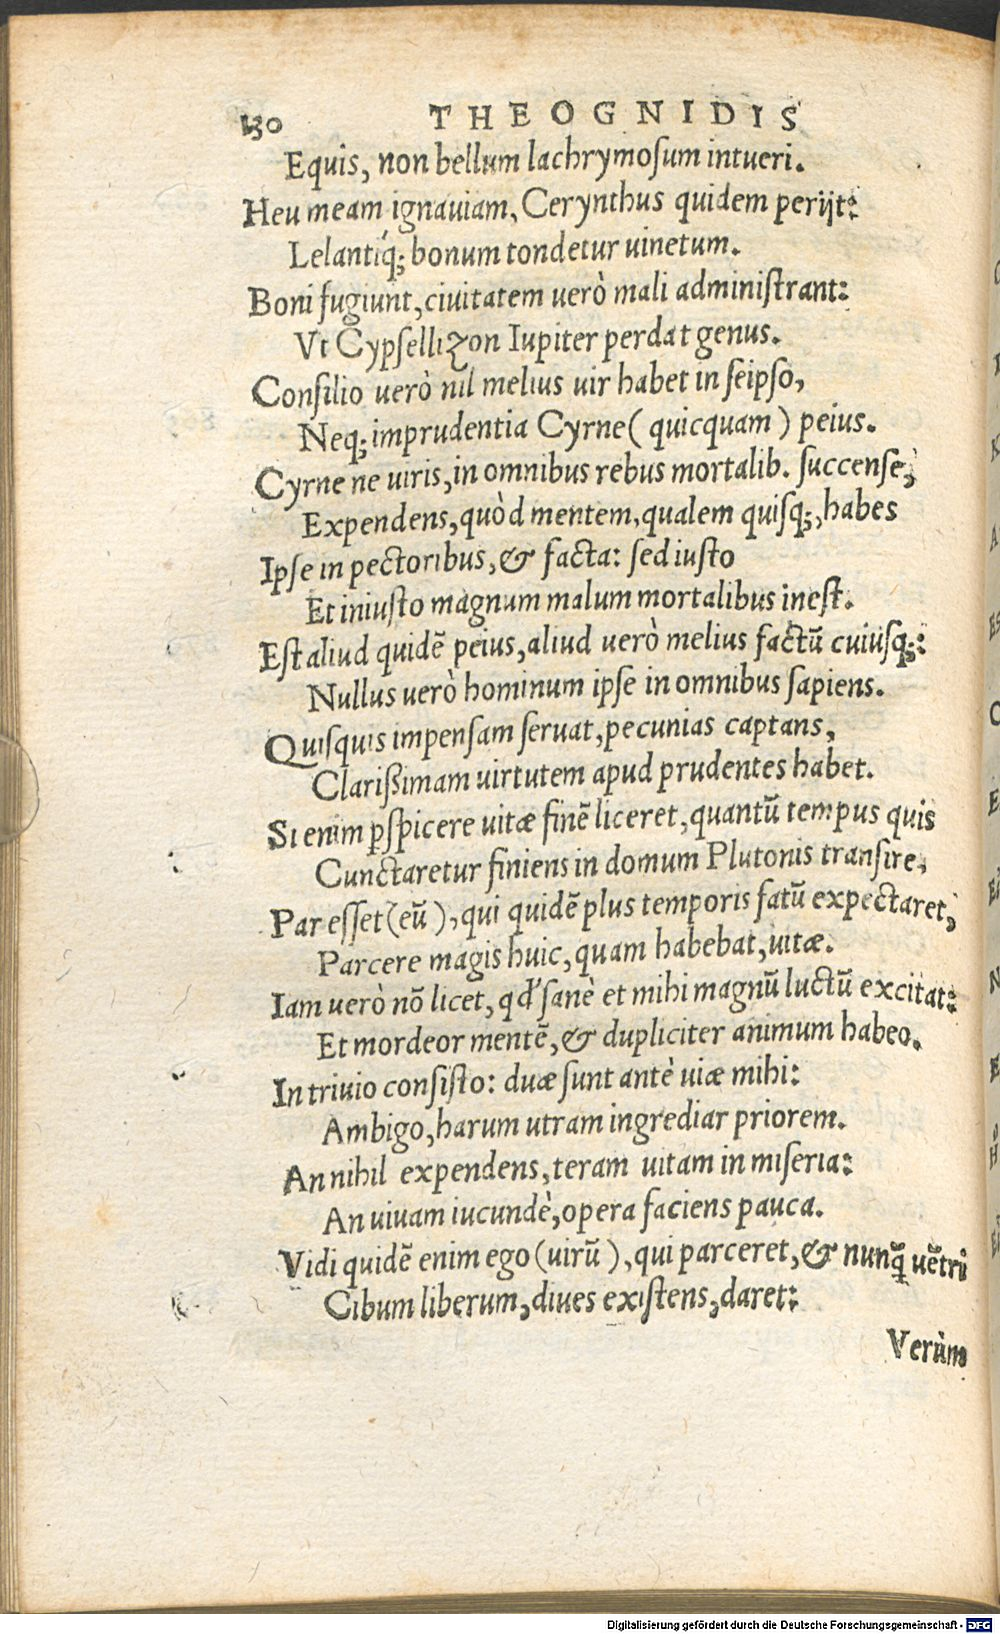 130 THEOGNIDIS
Equis, non bellum lachrymosum intueri.
Heu meam ignauiam, Cerynthus quidem perijt:
Lelantíq; bonum tondetur uinetum.
Boni fugiunt, ciuitatem uerò mali administrant:
Vt Cypsellizon Iupiter perdat genus.
Consilio uerò nil melius uir habet in seipso,
Neq; imprudentia Cyrne ( quicquam ) peius.
Cyrne ne uiris, in omnibus rebus mortalib. succense,
Expendens, quòd mentem, qualem quisq;, habes
Ipse in pectoribus, & facta: sed iusto
Et iniusto magnum malum mortalibus inest.
Est aliud quidē peius, aliud uerò melius factū cuiusq;:
Nullus uerò hominum ipse in omnibus sapiens.
Quisquis impensam seruat, pecunias captans,
Clarißimam uirtutem apud prudentes habet.
Si enim ꝑspicere uitæ finē liceret, quantū tempus quis
Cunctaretur finiens in domum Plutonis transire,
Par esset (eū), qui quidē plus temporis fatū expectaret,
Parcere magis huic, quam habebat, uitæ.
Iam uerò nō licet, qđ sanè et mihi magnū luctū excitat:
Et mordeor mentē, & dupliciter animum habeo.
In triuio consisto: duæ sunt antè uiæ mihi:
Ambigo, harum utram ingrediar priorem.
An nihil expendens, teram uitam in miseria:
An uiuam iucundè, opera faciens pauca.
Vidi quidē enim ego (uirū), qui parceret, & nunq̃ uētri
Cibum liberum, diues existens, daret:
Verùm
Digitalisierung gefördert durch die Deutsche Forschungsgemeinschaft - DFG